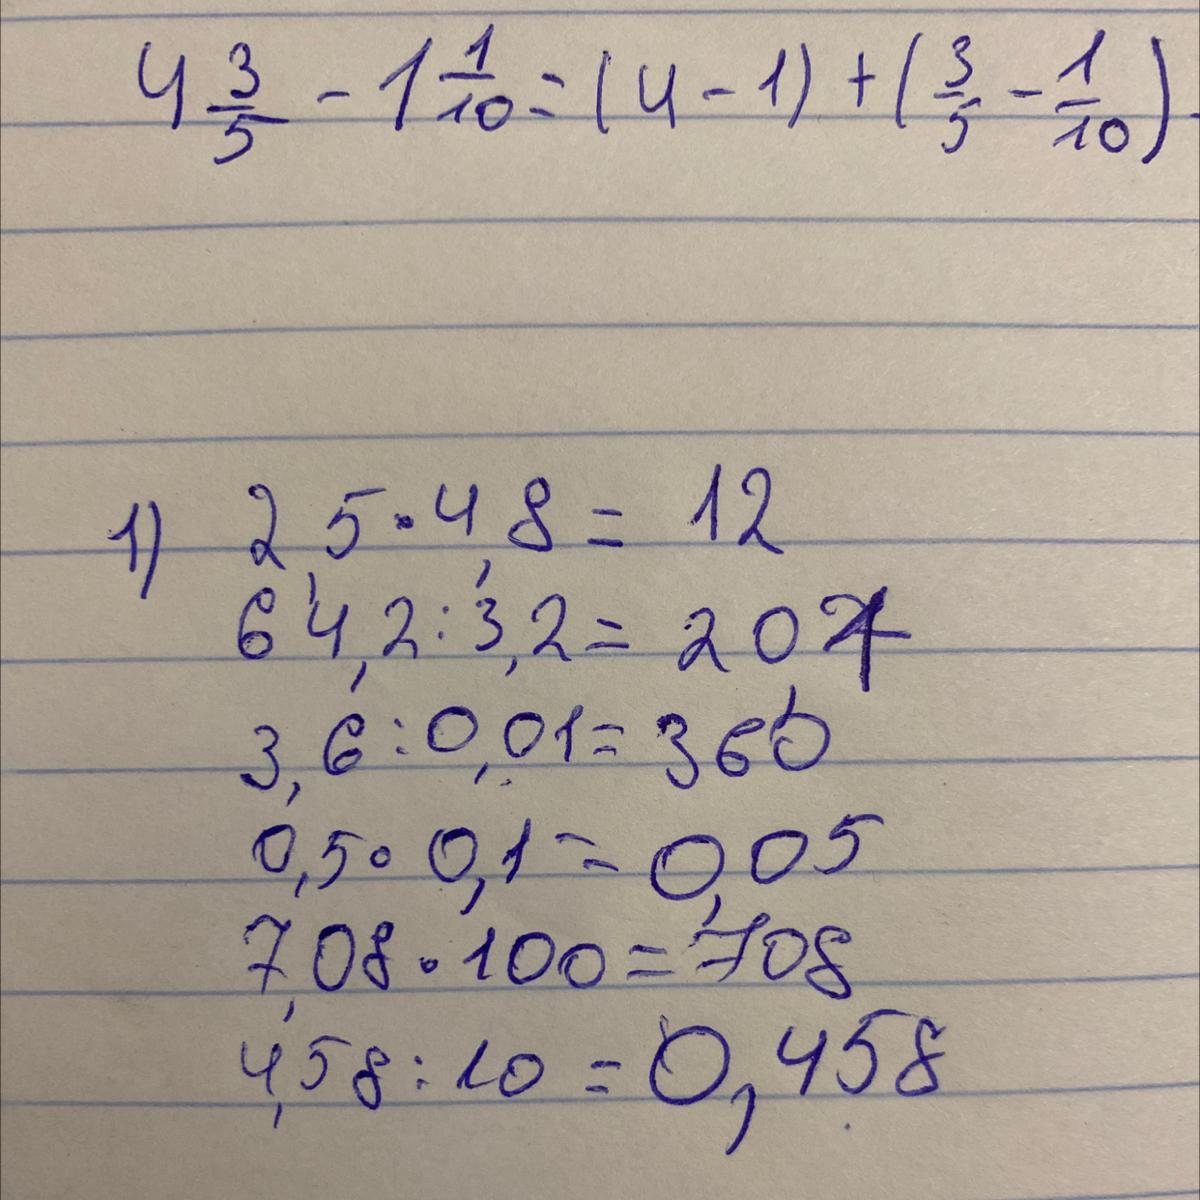 4 3/5 - 1 1/10 = (4 - 1) + (3/5 - 1/10)
1) 2,5 · 4,8 = 12
64,2 : 3,2 = 207
3,6 : 0,01 = 360
0,5 · 0,1 = 0,05
7,08 · 100 = 708
4,58 : 10 = 0,458